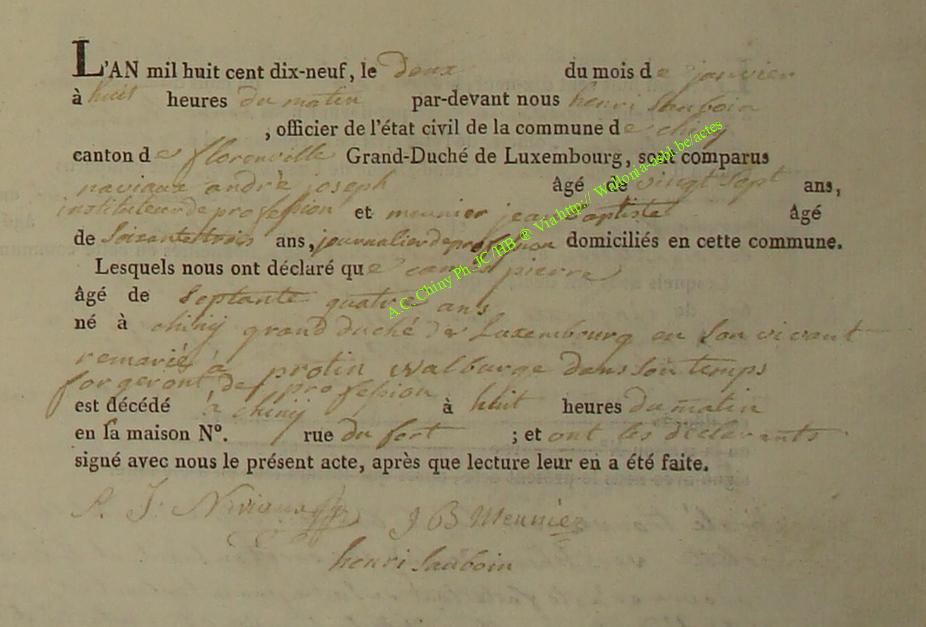 L'AN mil huit cent dix-neuf, le deux du mois de janvier
à huit heures du matin par-devant nous henri sauboin
, officier de l'état civil de la commune de chiny
canton de florenville Grand-Duché de Luxembourg, sont comparus
naviaux andrè joseph âgé de vingt sept ans,
instituteur de profession et meunier jean baptiste âgé
de soixante trois ans, journalier de profession domiciliés en cette commune.
Lesquels nous ont déclaré que pierre
âgé de septante quatre ans
né à chiny grand duché de Luxembourg en son vivant
remarié à protin walburge dans son temps
forgeront de profession
est décédé à chiny à huit heures du matin
en sa maison N°. rue du fort ; et ont les déclarants
signé avec nous le présent acte, après que lecture leur en a été faite.
A. J. Naviaux J B Meunier
henri sauboin
A.C. Chiny Ph. JC/HB ® Via http:// Wallonia-asbl.be/actes